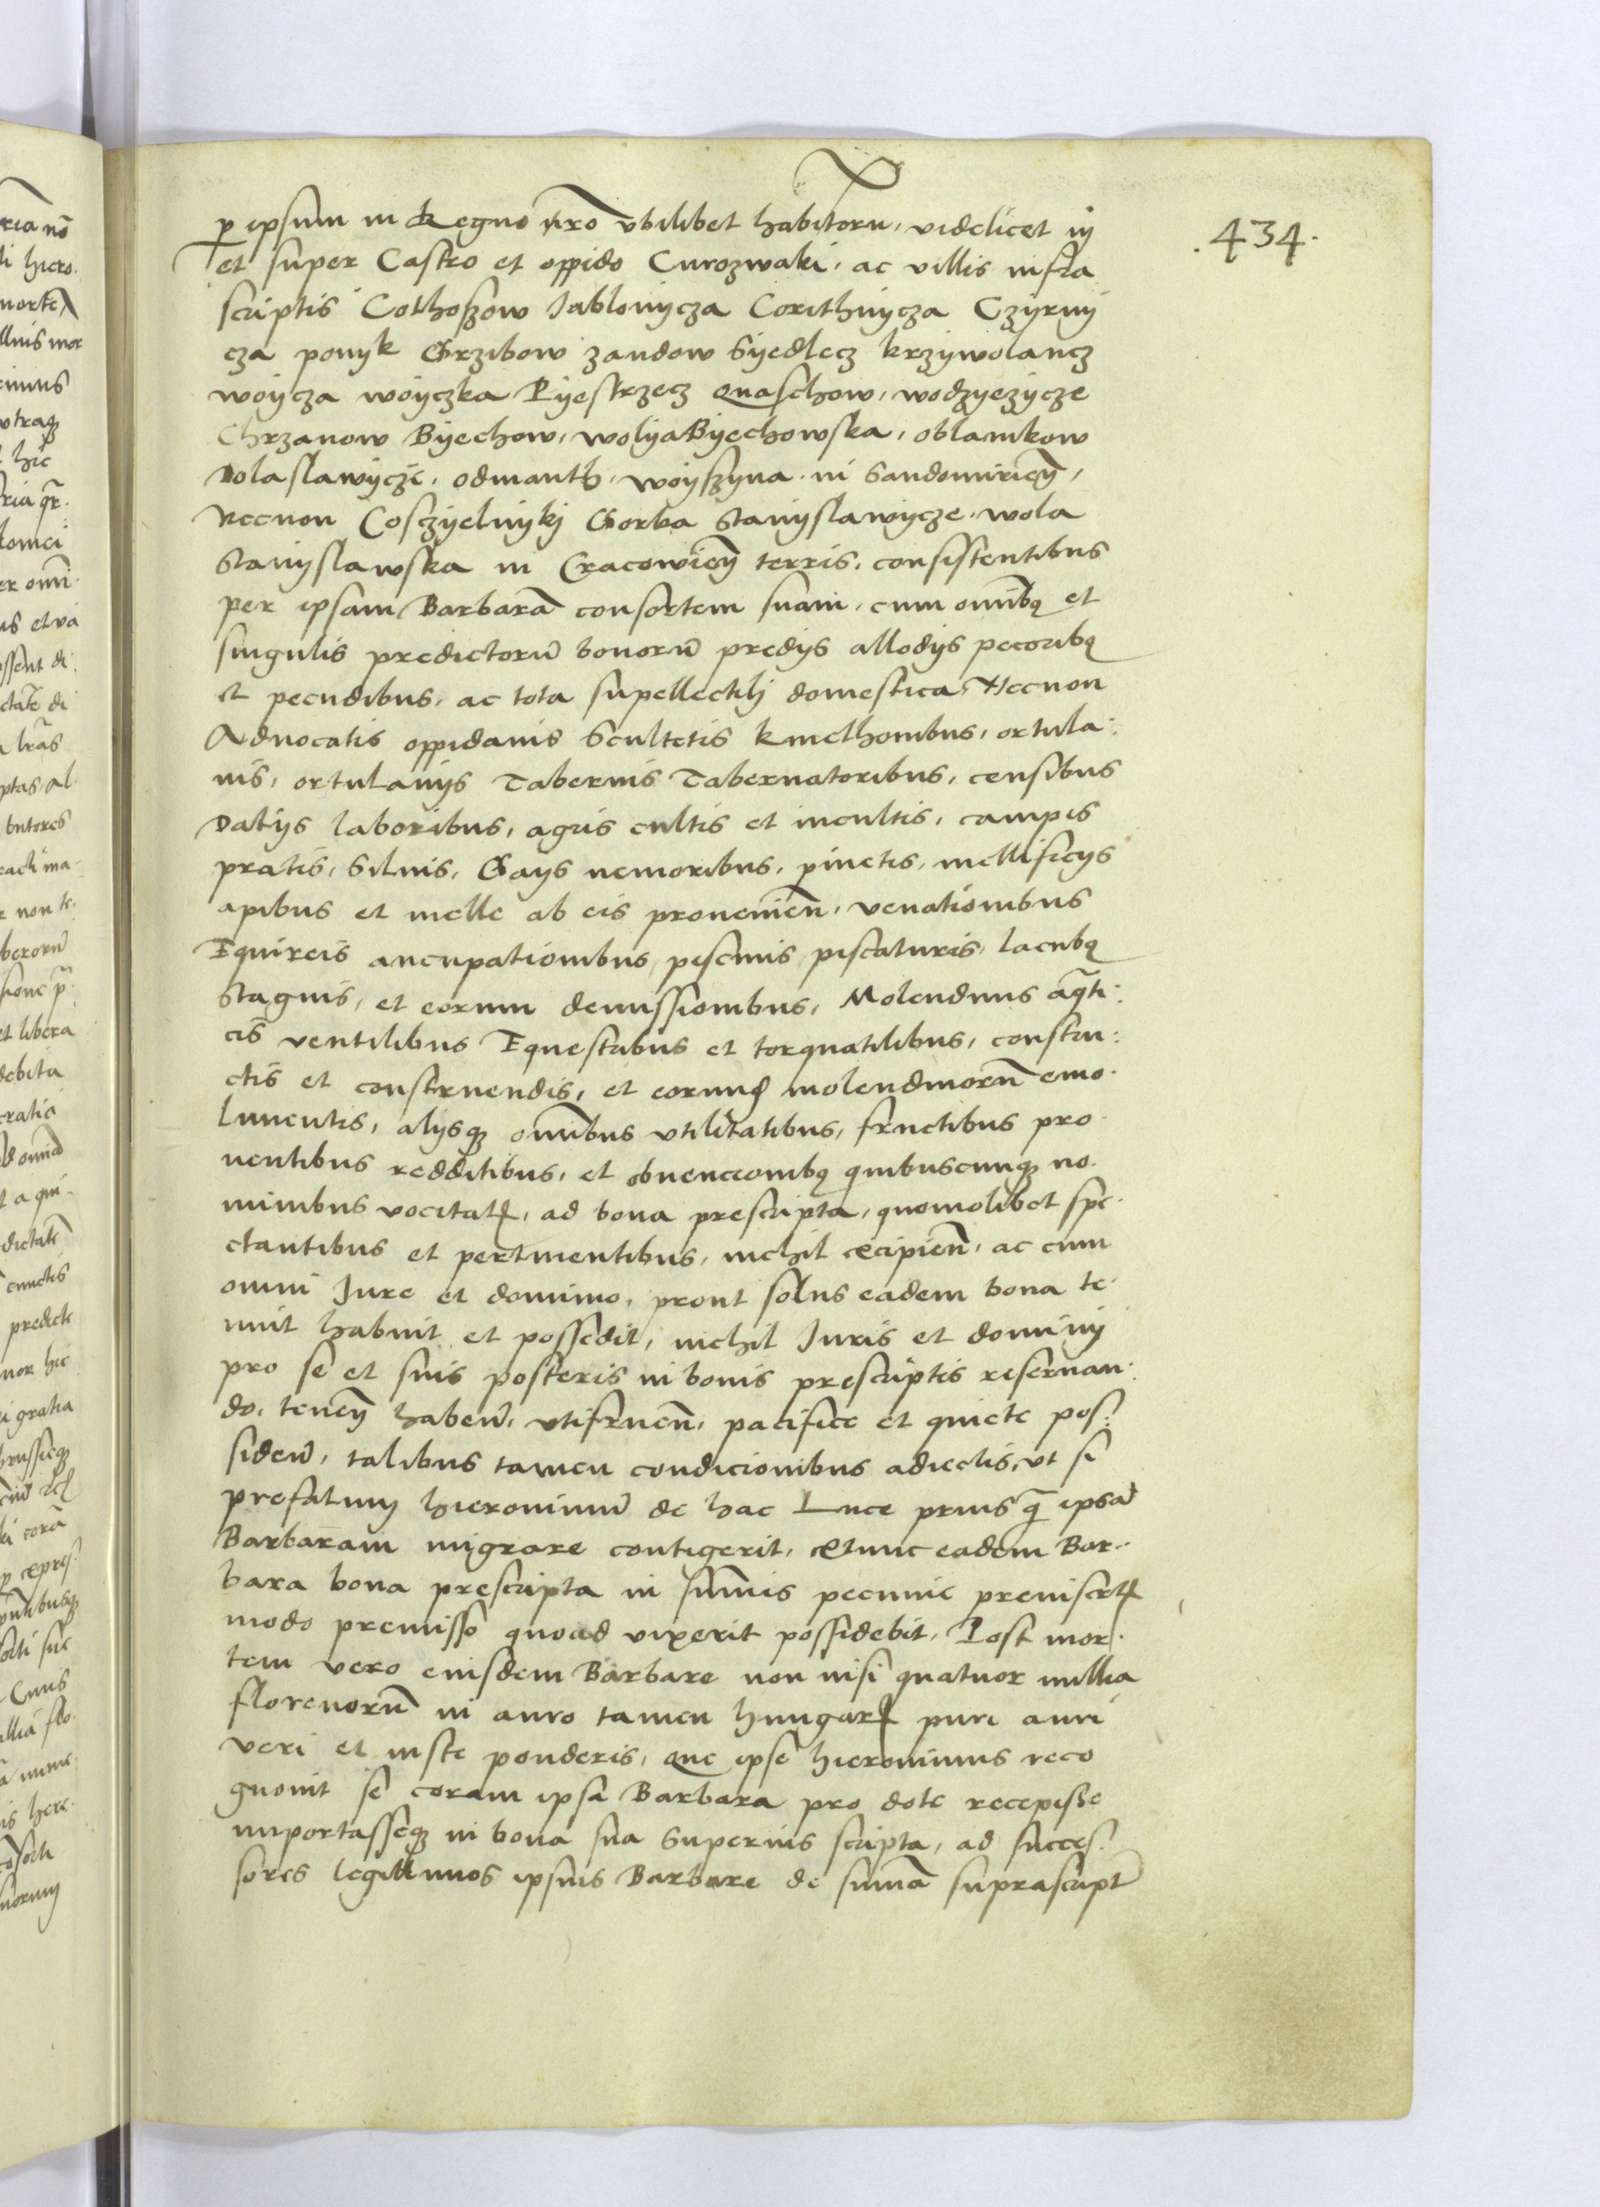 .434.
p ipsum in Regno nr̃o vbilibet habitoru, videlicet in
et super Castro et oppido Curozwaki, ac villis infra
scriptis Cothoszow Jablonycza Corithnycza Czyrny
cza ponyk Grzibow zandow Syedlecz krzywolancz
woycza woyczka Pyestrzecz Quaschow, wodzyezycze
Chrzanow Byechow, wolya Byechowska, oblamkow
Dolaslawycze, odmanth, woyszyna in Sandomirien̄,
Necnon Cosczyelnyky Gorka Stanyslawycze wola
Stanyslawska in Cracowien̄ terris, consistentibus
per ipsam Barbarā consortem suam, cum omnibꝫ et
singulis predictorū bonorū predys allodys pecoribꝫ
et pecudibus, ac tota supellectilj domestica, Necnon
Aduocatis oppidanis Scultetis kmethonibus, ortula:
nis, ortulanys Tabernis Tabernatoribus, censibus
Datys laboribus, agris cultis et incultis, campis
pratis, Siluis, Gays nemoribus, pinetis, mellificys
apibus et melle ab eis prouenien̄, venationibus
Equireis aucupationibus, piscinis piscaturis, lacubꝫ
Stagnis, et eorum demissionibus, Molendinis aq̃ti:
cis ventilibus Equestribus et torquatilibus, constru:
ctis et construendis, et eorund molendinorū emo.
lumentis, alysqꝫ omībus vtilitatibus, fructibus pro.
uentibus redditibus, et obuencionibꝫ quibuscunqꝫ no.
minibus vocitatꝭ, ad bona prescripta, quomolibet spe.
ctantibus et pertinentibus, nichil excipien̄, ac cum
omni Jure et dominio, prout solus eadem bona te.
nuit habuit et possedit, nichil Juris et dominy
pro se et suis posteris in bonis prescriptis reseruan:
do, tenen̄ haben̄, vtifruen̄, pacifice et quiete pos:
siden̄, talibus tamen condicionibus adiectis, vt si
prefatum hieronimū de hac Luce prius q̄ ipsā
Barbaram migrare contigerit, extunc eadem Bar..
bara bona prescripta in sum̄is pecunie preinsertꝭ
modo premisso quoad vixerit possidebit, Post mor.
tem vero eiusdem Barbare non nisi quatuor millia
florenorū in auro tamen hungarꝭ puri auri
veri et iuste ponderis, que ipse hieronimus reco
gnouit se coram ipsa Barbara pro dote recepisse
importasseqꝫ in bona sua Superius scripta, ad succes:
sores legittimos ipsius Barbare de summā suprascript̄